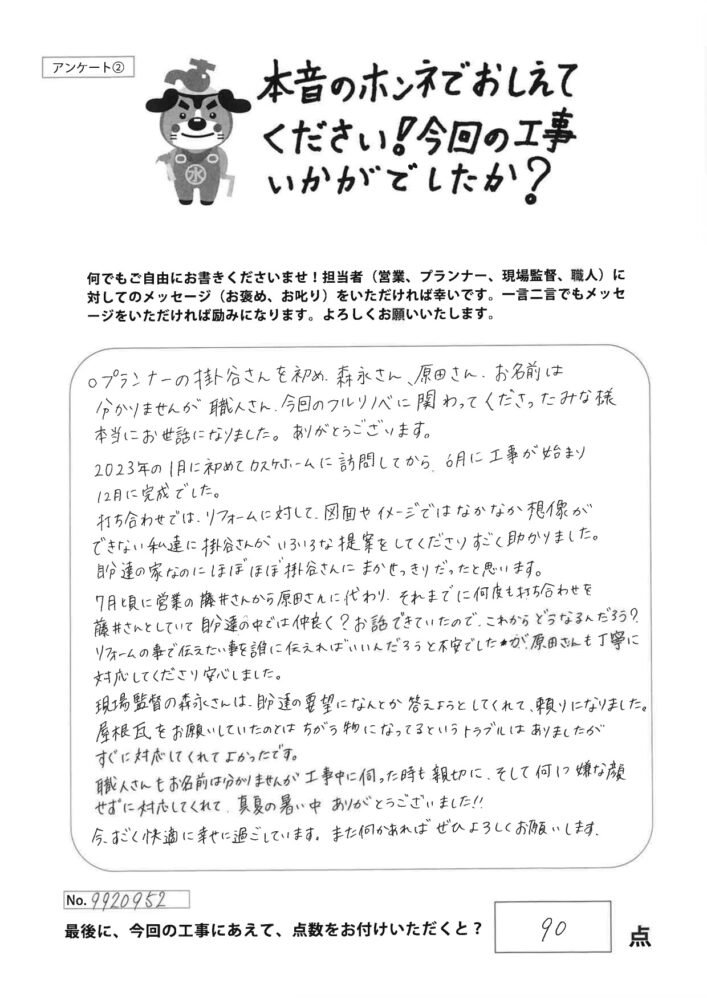 アンケート②
本音のホンネでおしえて
ください!今回の工事
いかがでしたか?
水
何でもご自由にお書きくださいませ！担当者（営業、プランナー、現場監督、職人）に
対してのメッセージ（お褒め、お叱り）をいただければ幸いです。一言二言でもメッセ
ージをいただければ励みになります。よろしくお願いいたします。
○プランナーの掛谷さんを初め、森永さん、原田さん、お名前は
分かりませんが職人さん、今回のフルリノベに関わってくださったみな様
本当にお世話になりました。ありがとうございます。
2023年の1月に初めてカスケホームに訪問してから、6月に工事が始まり
12月に完成でした。
打ち合わせでは、リフォームに対して、図面やイメージではなかなか想像が
できない私達に掛谷さんがいろいろな提案をしてくださりすごく助かりました。
自分達の家なのにほぼほぼ掛谷さんにまかせっきりだったと思います。
7月頃に営業の藤井さんから原田さんに代わり、それまでに何度も打ち合わせを
藤井さんとしていて自分達の中では仲良く?お話できていたので、これからどうなるんだろう?
リフォームの事で伝えたい事を誰に伝えればいいんだろうと不安でしたが、原田さんも丁寧に
対応してくださり安心しました。
現場監督の森永さんは、自分達の要望になんとか答えようとしてくれて、頼りになりました。
屋根瓦をお願いしていたのとはちがう物になってるというトラブルはありましたが
すぐに対応してくれてよかったです。
職人さんもお名前は分かりませんが工事中に伺った時も親切に、そして何1つ嫌な顔
せずに対応してくれて、真夏の暑い中ありがとうございました!!
今、すごく快適に幸せに過ごしています。また何かあればぜひよろしくお願いします。
No. 9920952
最後に、今回の工事にあえて、点数をお付けいただくと？ 90 点